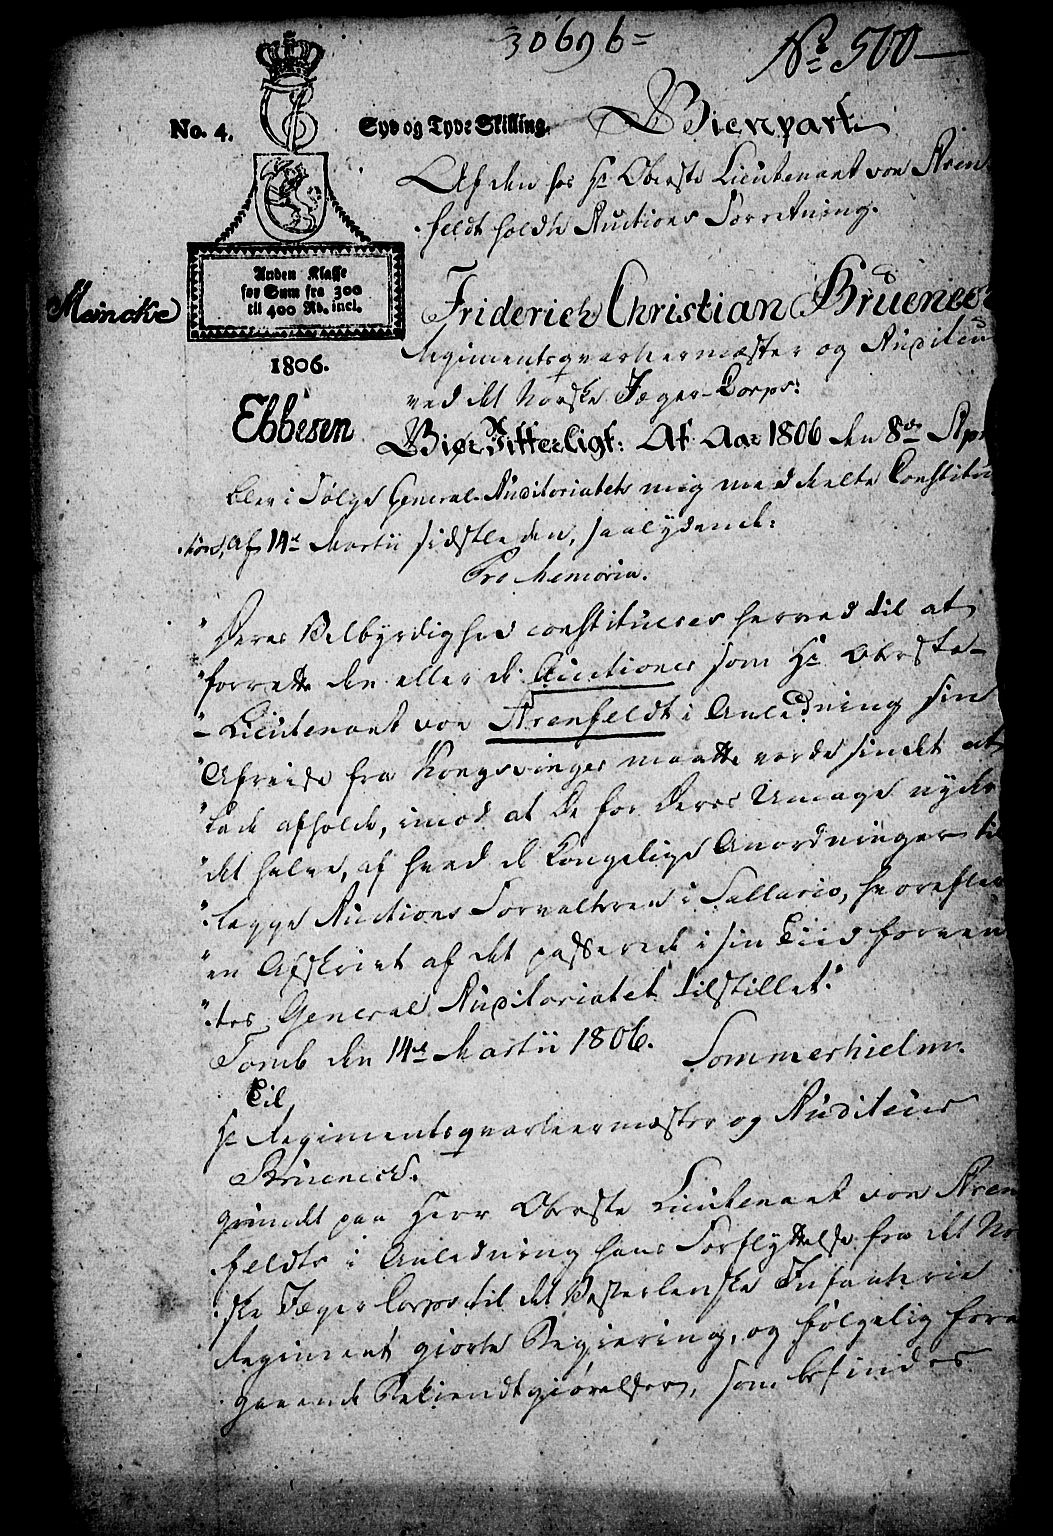 30696=
No 500—
No. 4.
Syv og Tyve Skilling.
Gienpart
Af den hos Hr Oberste Lieutenant von Aren
feldt holdte Auctions Forretning.
Anden Klasse
for Sum fra 300
til 400 Rd. incl.
Meincke
1806.
Ebbesen
Friderich Christian Bruenech
Regimentsqvarteermæster og Auditeur
ved det Norske Jæger-Corps:
Giør Vitterligt: At Aar 1806 den 8de Apr
blev i Følge General-Auditoriatets mig meddeelte Constitu
tion, af 14de Martii sidstleden, saalydende:
Pro Memoria.
"Deres Velbyrdighed constitueres herved til at
"forrette den eller de Auctioner som Hr Oberste-
"Lieutenant von Arenfeldt i Anledning sin
"Afreise fra Kongsvinger maatte vorde sindet at
"lade afholde, imod at De for Deres Umage nyder
"det halve, af hvad de Kongelige Anordninger til
"legge Auctions Forvalteren i Sallario, hvorefter
"en Afskrivt af det passerede i sin Tiid forven
"tes General Auditoriatet tilstillet."
Tomb den 14de Martii 1806.
Sommerhielm.
Til
Hr Regimentsqvarteermæster og Auditeur
Bruenech.
grundet paa Herr Oberste Lieutenant von Aren
feldts i Anledning hans Forflyttelse fra det No
ske Jæger Corps til det Vesterlenske Infanterie
Regiment giorte Reqviering, og følgelig fore
gaaende Bekiendtgiørelser, som befindes